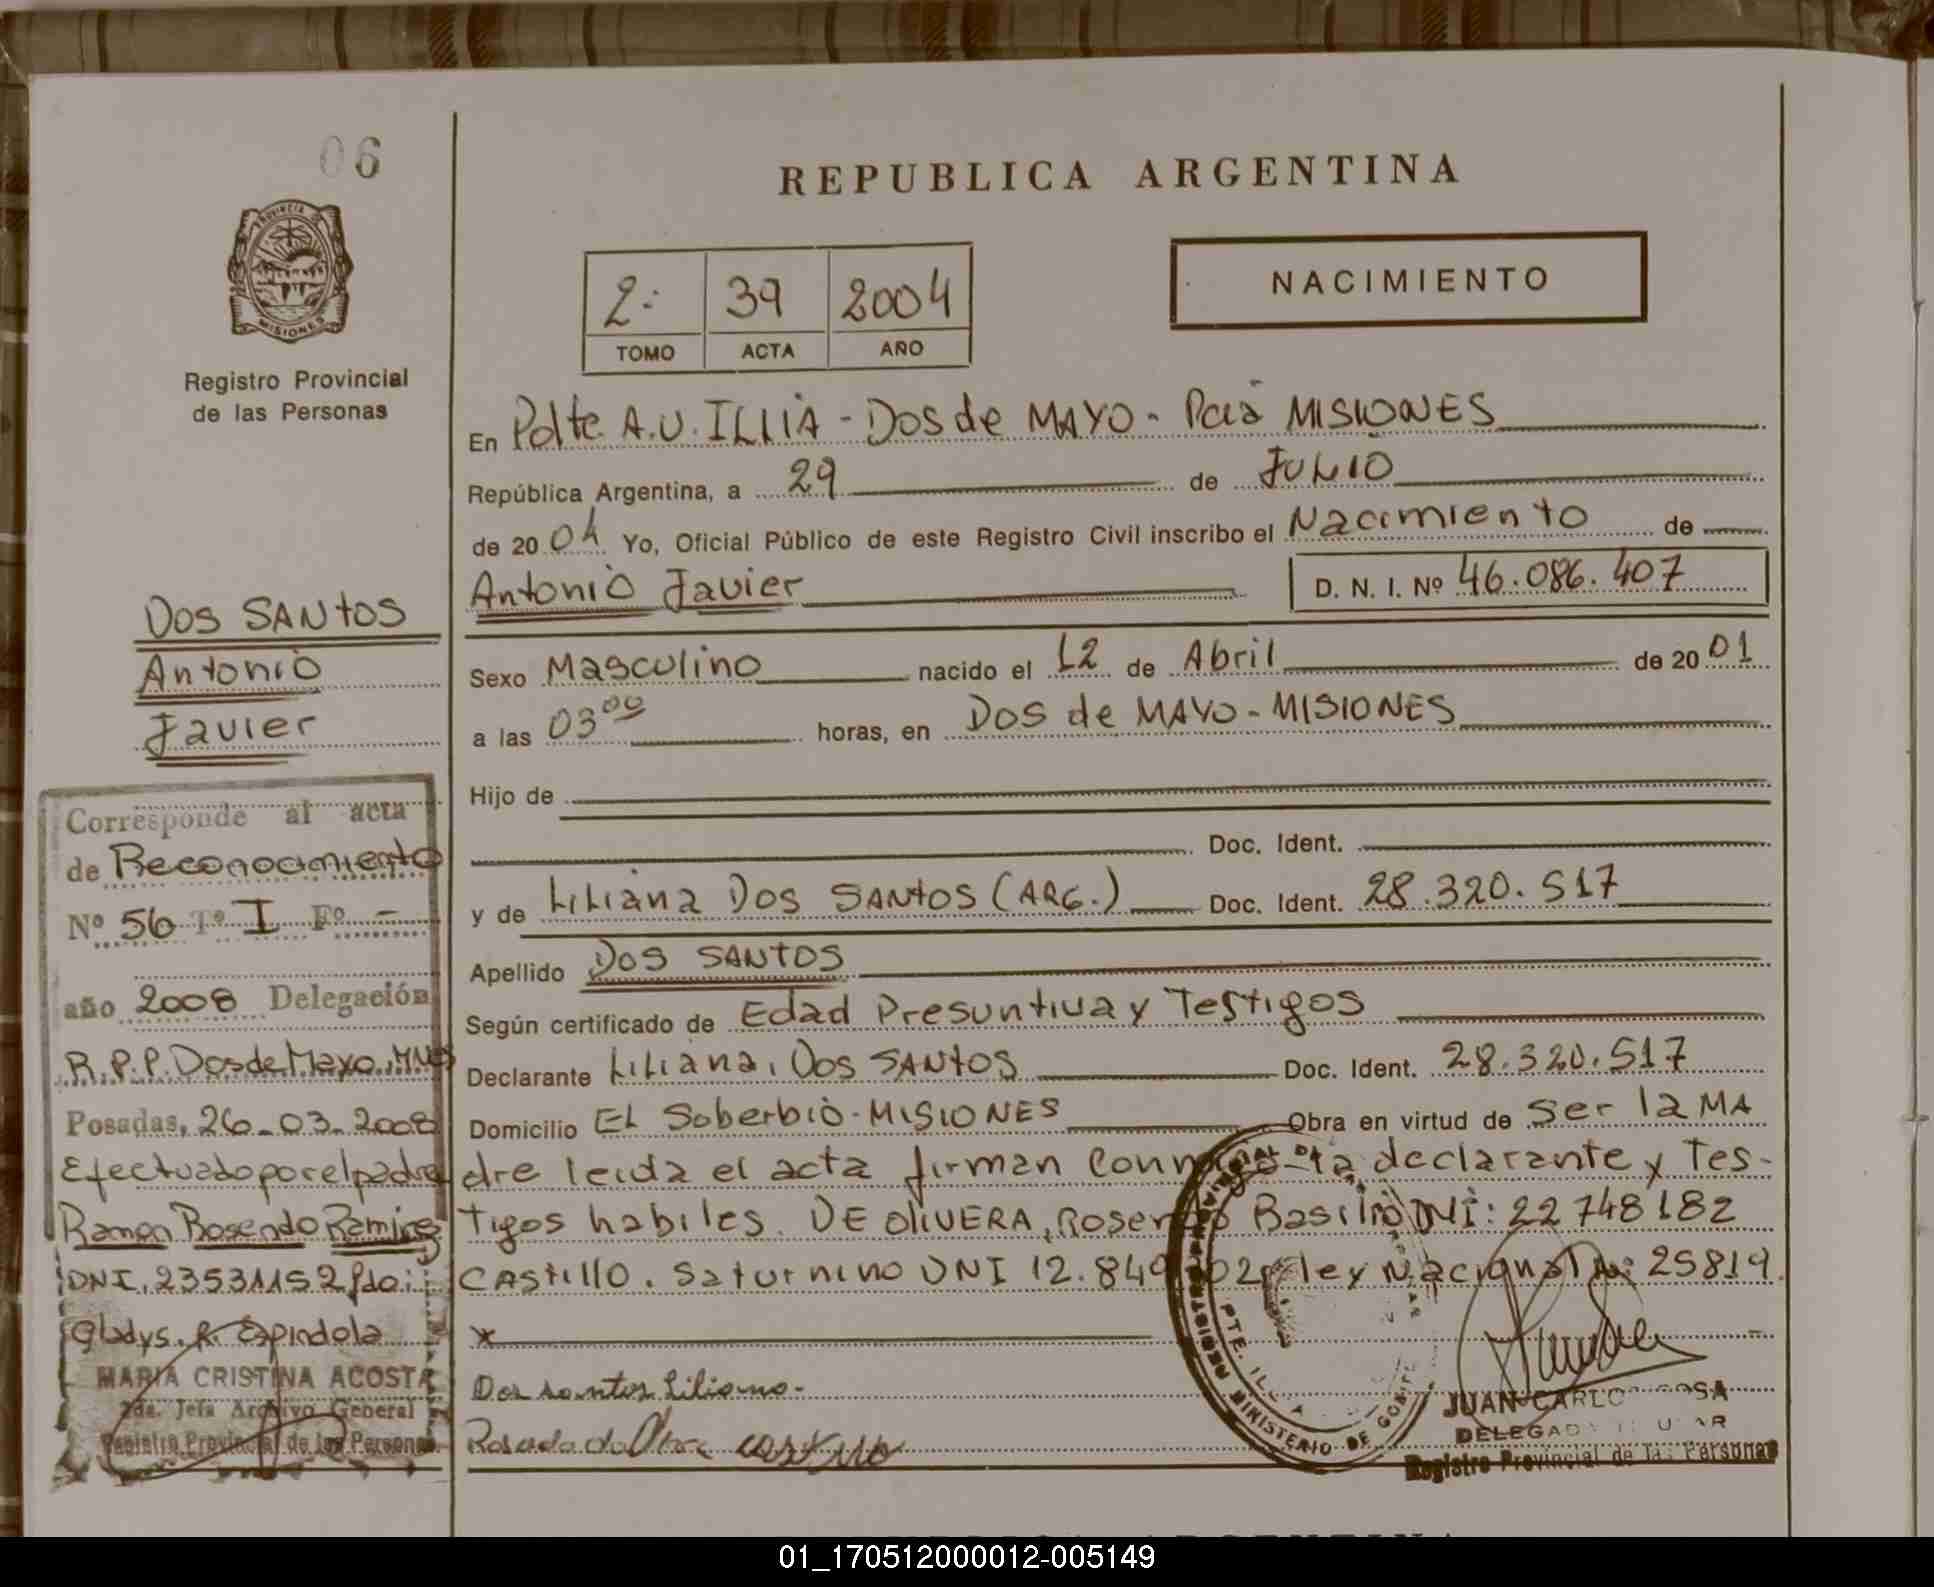 06
PROVINCIA DE
MISIONES
Registro Provincial
de las Personas
REPUBLICA ARGENTINA
2º 39 2004
TOMO ACTA AÑO
NACIMIENTO
En Pdte. A.U. ILLIA - DOS de MAYO - Pcia MISIONES
República Argentina, a 29 de JULIO
de 2004 Yo, Oficial Público de este Registro Civil inscribo el Nacimiento de
Antonio Javier D. N. I. Nº 46.086.407
Sexo Masculino nacido el 12 de Abril de 2001
a las 03 00 horas, en DOS de MAYO - MISIONES
Hijo de
Doc. Ident.
y de LiLiana DOS SANTOS (ARG.) Doc. Ident. 28.320.517
Apellido DOS SANTOS
Según certificado de Edad Presuntiva y Testigos
Declarante LiLiana, DOS SANTOS Doc. Ident. 28.320.517
Domicilio EL Soberbio - MISIONES Obra en virtud de ser la MA
dre leida el acta firman conmigo la declarante y Tes-
tigos habiles. DE OLIVERA, Rosendo Basilio DNI: 22748182
CASTILLO. Saturnino DNI 12.849 02 ley Nacional Nº: 25819
Dos santos Liliana.-
castillo
JUAN CARLOS SOSA
DELEGADO TITULAR
Registro Provincial de las Personas
MINISTERIO DE GOB
DOS SANTOS
Antonio
Javier
Corresponde al acta
de Reconocimiento
Nº 56 Tº I Fº -
año 2008 Delegación
R.P.P. Dos de Mayo. MNES
Posadas, 26-03-2008
Efectuado por el padre
Ramon Rosendo Ramirez
DNI. 23531152 fdo:
Gladys. R. Espindola
MARIA CRISTINA ACOSTA
2da. Jefa Archivo General
Registro Provincial de las Personas
01_170512000012-005149